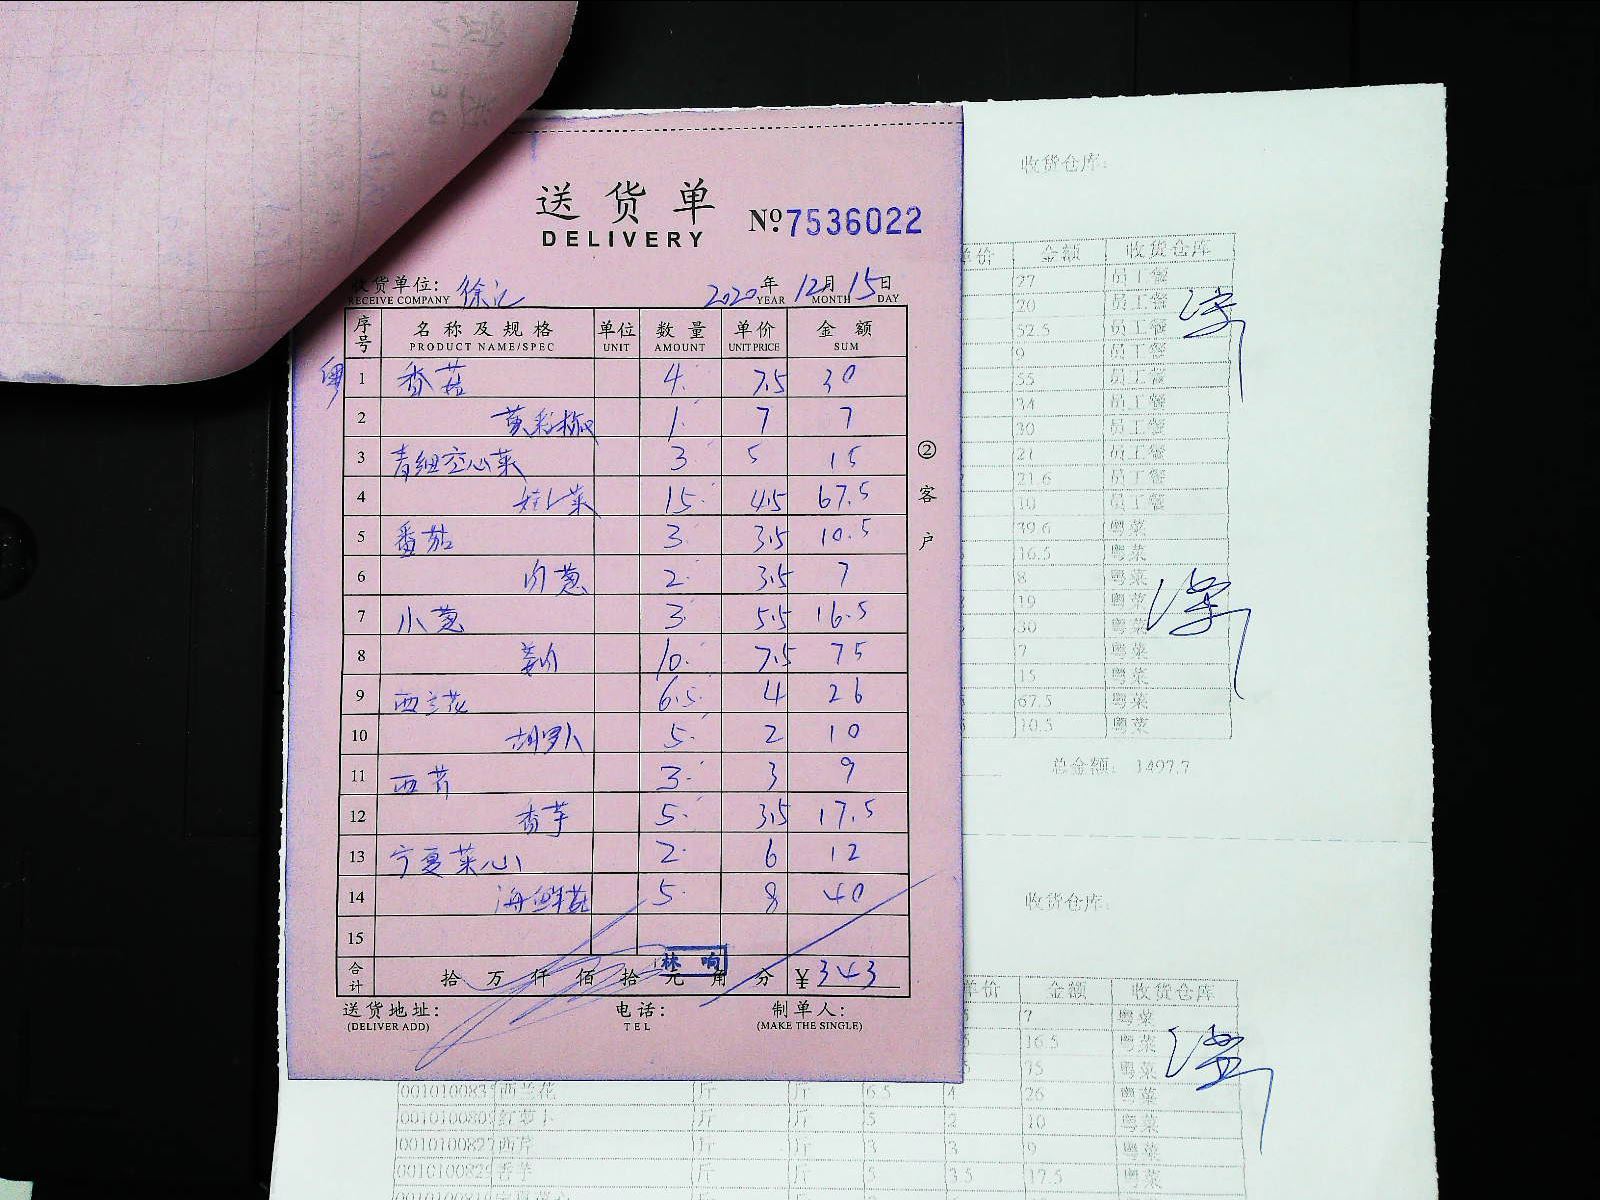 送货单
DELIVERY
№ 7536022
收货单位: 徐记 2020年12月15日
RECEIVE COMPANY YEAR MONTH DAY
序号 名称及规格 单位 数量 单价 金额
PRODUCT NAME/SPEC UNIT AMOUNT UNIT PRICE SUM
粤 1 香菇 4 7.5 30
2 黄彩椒 1 7 7
3 青细空心菜 3 5 15
4 娃娃菜 15 4.5 67.5
5 番茄 3 3.5 10.5
6 肉葱 2 3.5 7
7 小葱 3 5.5 16.5
8 姜 10 7.5 75
9 西兰花 6.5 4 26
10 胡萝卜 5 2 10
11 西芹 3 3 9
12 香芋 5 3.5 17.5
13 宁夏菜心 2 6 12
14 海鲜菇 5 8 40
15
合计 拾 万 仟 佰 拾 元 角 分 ¥343
林 响
送货地址: 电话: 制单人:
(DELIVER ADD) TEL (MAKE THE SINGLE)
②客户
收货仓库:
单价 金额 收货仓库
27 员工餐
20 员工餐
52.5 员工餐
9 员工餐
55 员工餐
34 员工餐
30 员工餐
21 员工餐
21.6 员工餐
10 员工餐
39.6 粤菜
16.5 粤菜
8 粤菜
19 粤菜
30 粤菜
7 粤菜
15 粤菜
67.5 粤菜
10.5 粤菜
总金额: 1497.7
收货仓库:
单价 金额 收货仓库
7 粤菜
16.5 粤菜
75 粤菜
西兰花 斤 斤 6.5 4 26 粤菜
红萝卜 斤 斤 5 2 10 粤菜
西芹 斤 斤 3 3 9 粤菜
香芋 斤 斤 5 3.5 17.5 粤菜